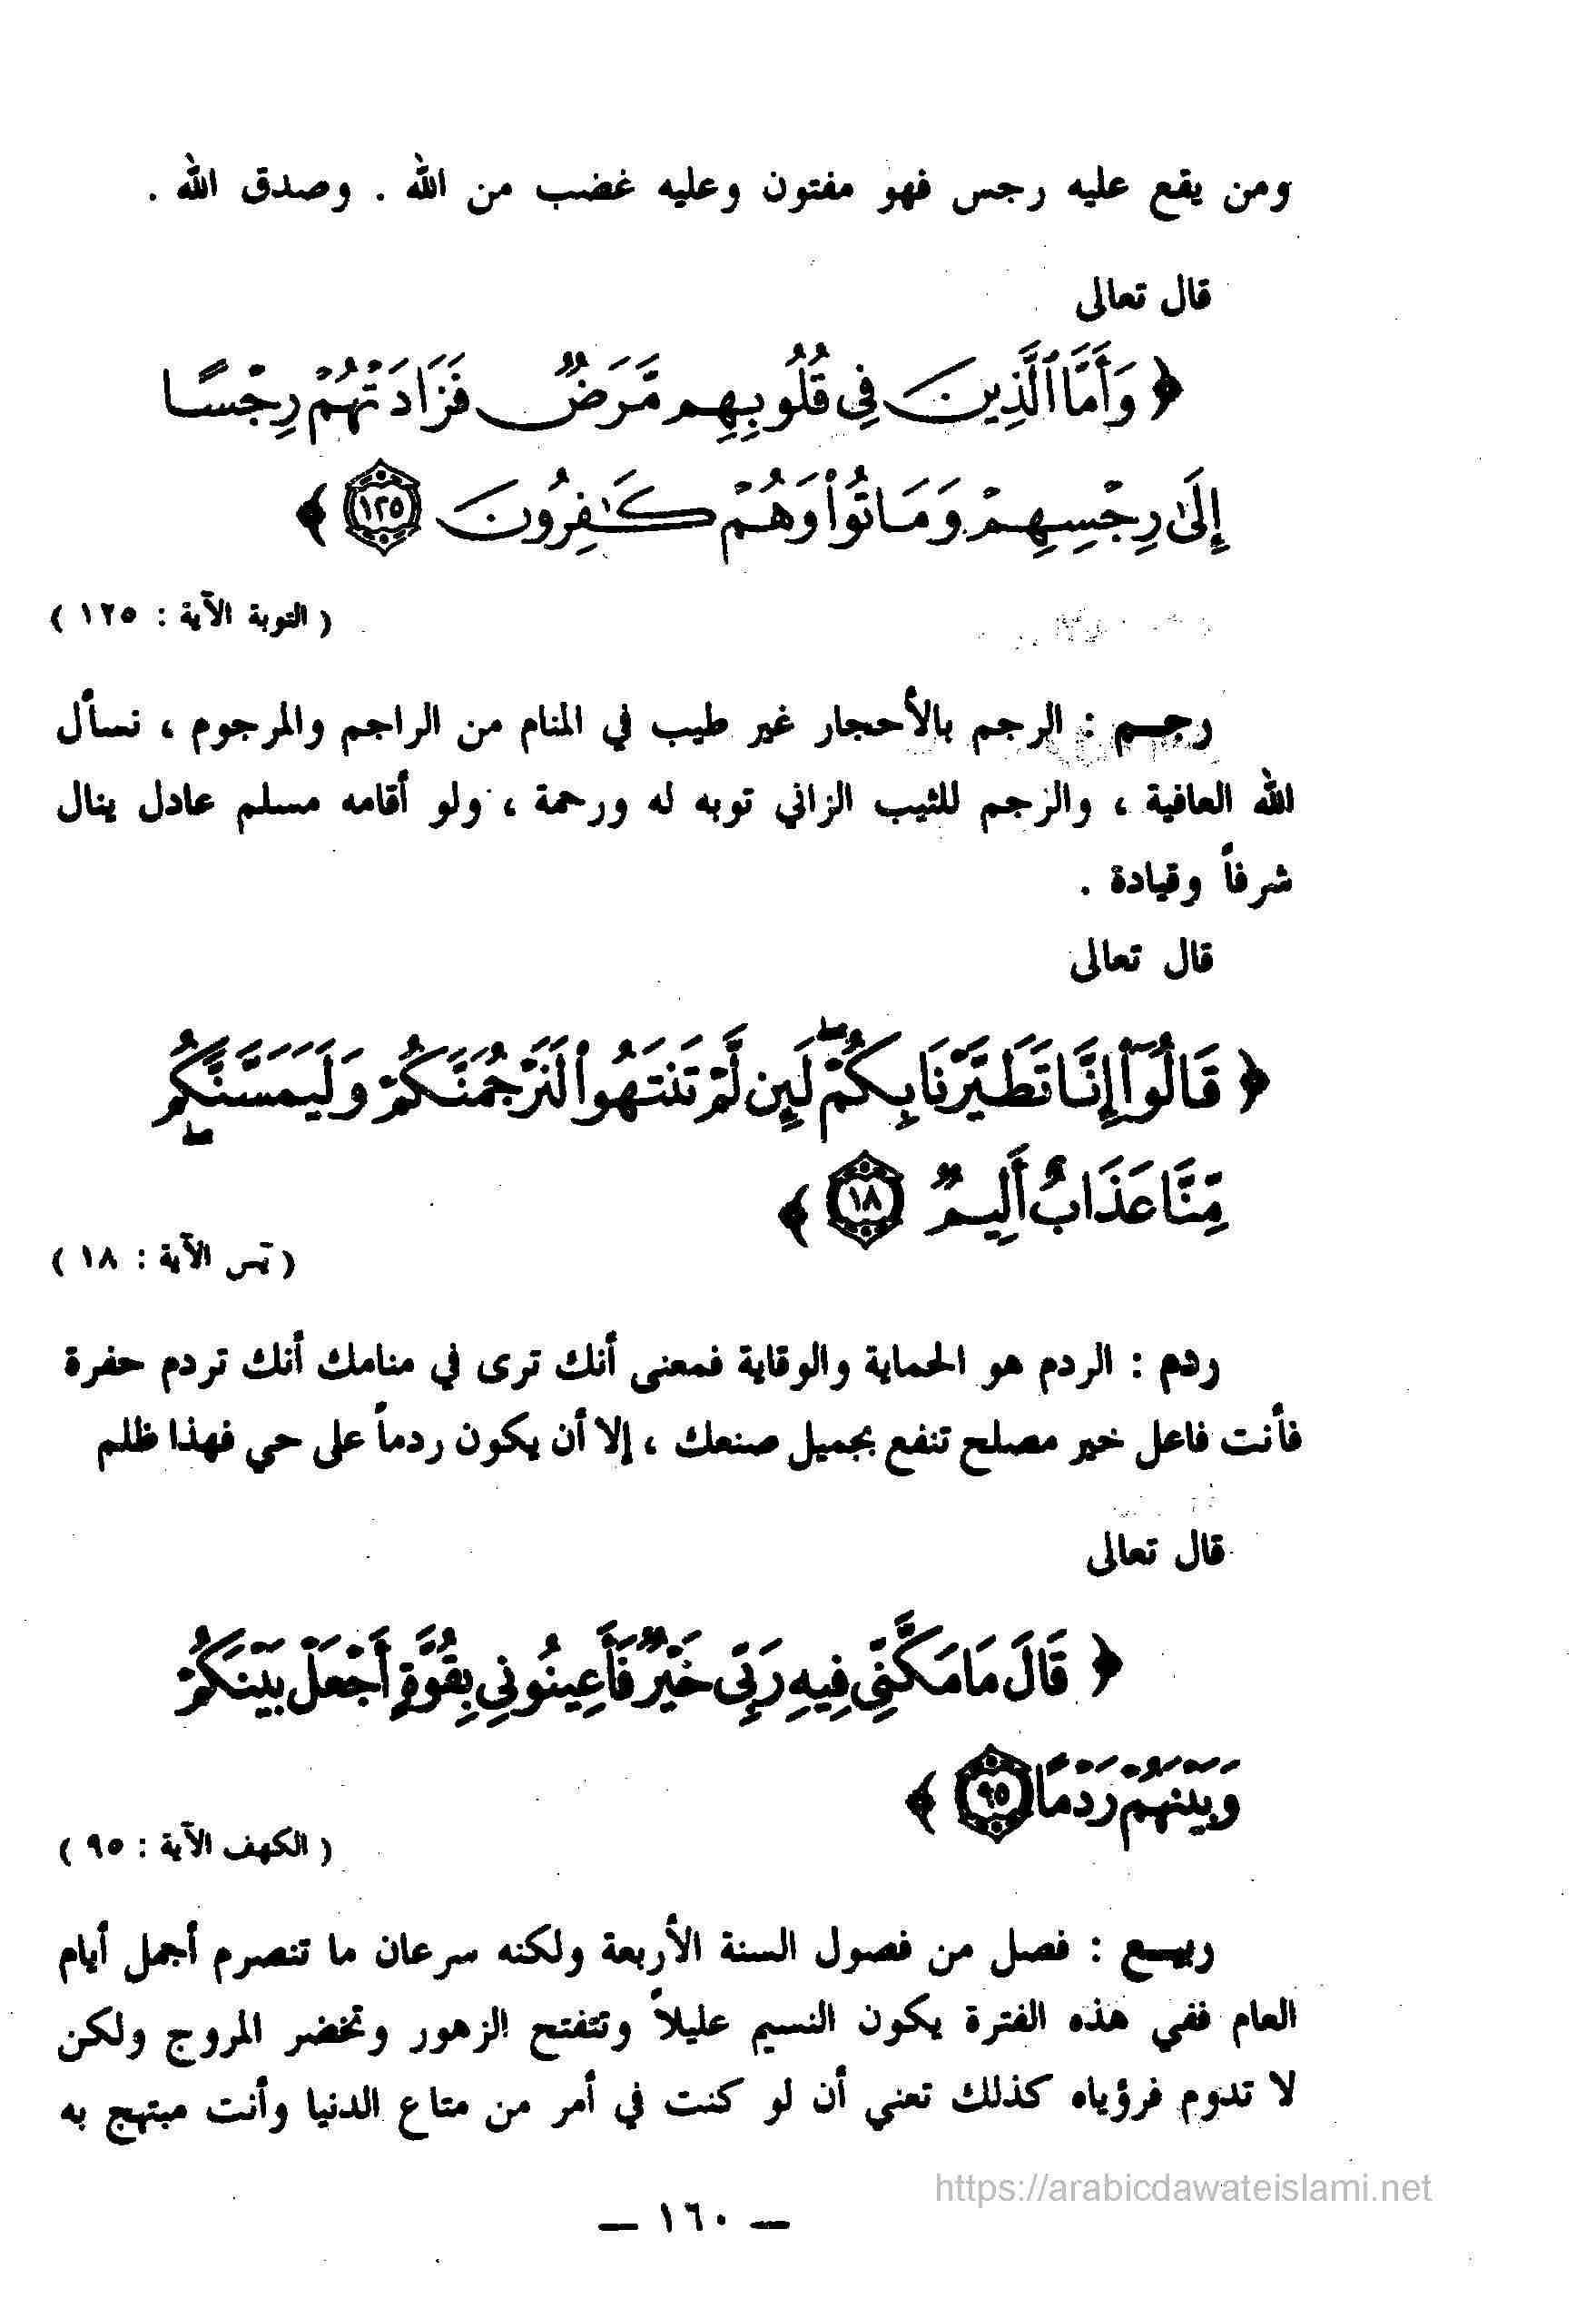 ومن يقع عليه رجس فهو مفتون وعليه غضب من الله . وصدق الله .
قال تعالى
﴿ وَأَمَّا ٱلَّذِينَ فِى قُلُوبِهِم مَّرَضٌ فَزَادَتْهُمْ رِجْسًا
إِلَىٰ رِجْسِهِمْ وَمَاتُوا۟ وَهُمْ كَـٰفِرُونَ ١٢٥ ﴾
( التوبة الآية : ١٢٥ )
رجـم : الرجم بالأحجار غير طيب في المنام من الراجم والمرجوم ، نسأل
الله العافية ، والرجم للثيب الزاني توبه له ورحمة ، ولو أقامه مسلم عادل ينال
شرفاً وقيادة .
قال تعالى
﴿ قَالُوٓا۟ إِنَّا تَطَيَّرْنَا بِكُمْ ۖ لَئِن لَّمْ تَنتَهُوا۟ لَنَرْجُمَنَّكُمْ وَلَيَمَسَّنَّكُم
مِّنَّا عَذَابٌ أَلِيمٌ ١٨ ﴾
( يٓس الآية : ١٨ )
ردم : الردم هو الحماية والوقاية فمعنى أنك ترى في منامك أنك تردم حفرة
فأنت فاعل خير مصلح تنفع بجميل صنعك ، إلا أن يكون ردماً على حي فهذا ظلم
قال تعالى
﴿ قَالَ مَا مَكَّنِّى فِيهِ رَبِّى خَيْرٌ فَأَعِينُونِى بِقُوَّةٍ أَجْعَلْ بَيْنَكُمْ
وَبَيْنَهُمْ رَدْمًا ٩٥ ﴾
( الكهف الآية : ٩٥ )
ربيـع : فصل من فصول السنة الأربعة ولكنه سرعان ما تنصرم أجمل أيام
العام ففي هذه الفترة يكون النسيم عليلاً وتتفتح الزهور وتخضر المروج ولكن
لا تدوم فرؤياه كذلك تعني أن لو كنت في أمر من متاع الدنيا وأنت مبتهج به
https://arabicdawateislami.net
— ١٦٠ —